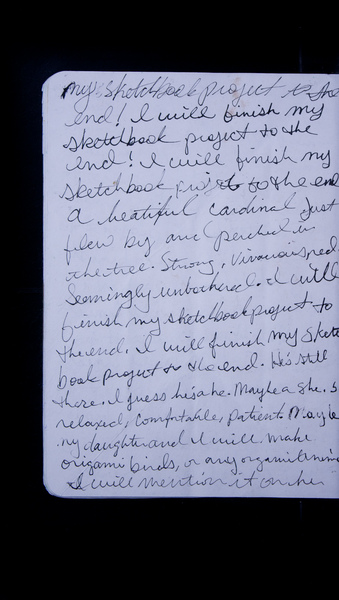 my sketchbook project to the
end! I will finish my
sketchbook project to the
end! I will finish my
sketchbook project to the end
A beatiful cardinal just
flew by and perched in
the tree. Strong, vivacious, red
Seemingly unbothered. I will
finish my sketchbook project to
the end. I will finish my sketch
book project to the end. He's still
there. I guess he's a he. Maybe a she. S
relaxed, comfortable, patient. Maybe
my daughter and I will make
origami birds, or any origami
I will mention it on her